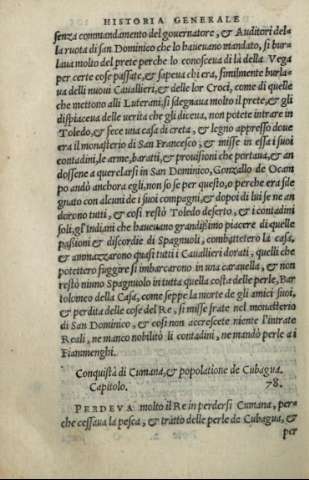 HISTORIA GENERALE
senza commandamento del governatore, & Auditori del-
la ruota di san Dominico che lo haueuano mandato, si bur-
laua molto del prete perche lo conosceua di là della Vega
per certe cose passate, & sapeua chi era, similmente burla-
ua delli nuoui Cauallieri, & delle lor Croci, come di quelle
che mettono alli Luterani, si sdegnaua molto il prete, & gli
dispiaceua delle uerita che gli diceua, non potete intrare in
Toledo, & fece una casa di creta, & legno appresso doue
era il monasterio di San Francesco, & misse in essa i suoi
contadini, le arme, barati, & prouisioni che portaua, & an
dossene a querelarsi in San Dominico, Gonzallo de Ocam
po andò anchora egli, non so se per questo, o perche era sde
gnato con alcuni de i suoi compagni, & dopoi di lui se ne an
dorono tutti, & cosi restò Toledo deserto, & i contadini
soli, gl'Indiani che haueuano grandissimo piacere di quelle
passioni & discordie di Spagnuoli, combattetero la casa,
& ammazzarono quasi tutti i Cauallieri dorati, quelli che
potettero fuggire si imbarcorono in una carauella, & non
restò niuno Spagnuolo in tutta quella costa delle perle, Bar
tolomeo della Casa, come seppe la morte de gli amici suoi,
& perdita delle cose del Re, si misse frate nel monasterio
di San Dominico, & cosi non accrescete niente l'intrate
Reali, ne manco nobilitò li contadini, ne mandò perle a i
Fianmenghi.
Conquistà di Cumana, & popolatione de Cubagua.
Capitolo. 78.
PERDEVA molto il Re in perdersi Cumana, per-
che cessaua la pesca, & tratto delle perle de Cubagua, &
per